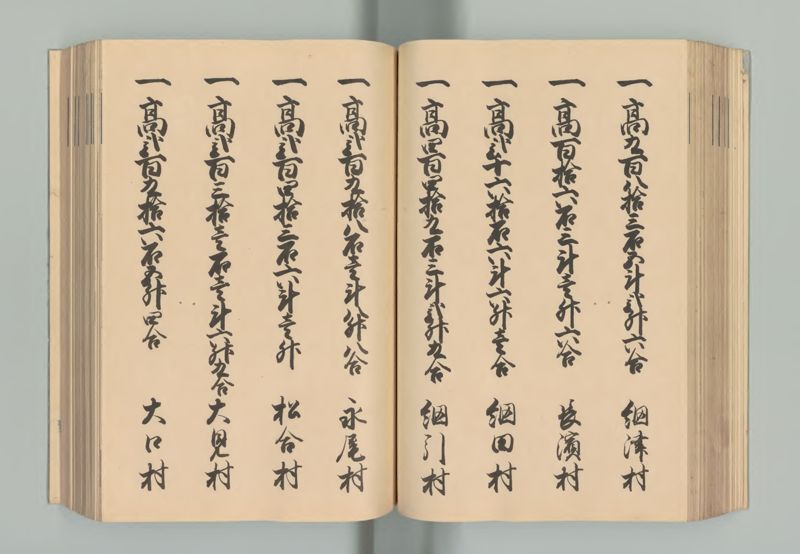 一 高九百八拾三石五斗弐升六合 網津村
一 高百拾六石三斗壱升六合 長濱村
一 高弐千六拾石六斗六升壱合 網田村
一 高四百四拾九石三斗弐升九合 網引村
一 高弐百九拾八石壱斗八升八合 永尾村
一 高弐百四拾三石六斗壱升 松合村
一 高弐百三拾壱石壱斗六升九合 大見村
一 高弐百九拾六石五升四合 大口村